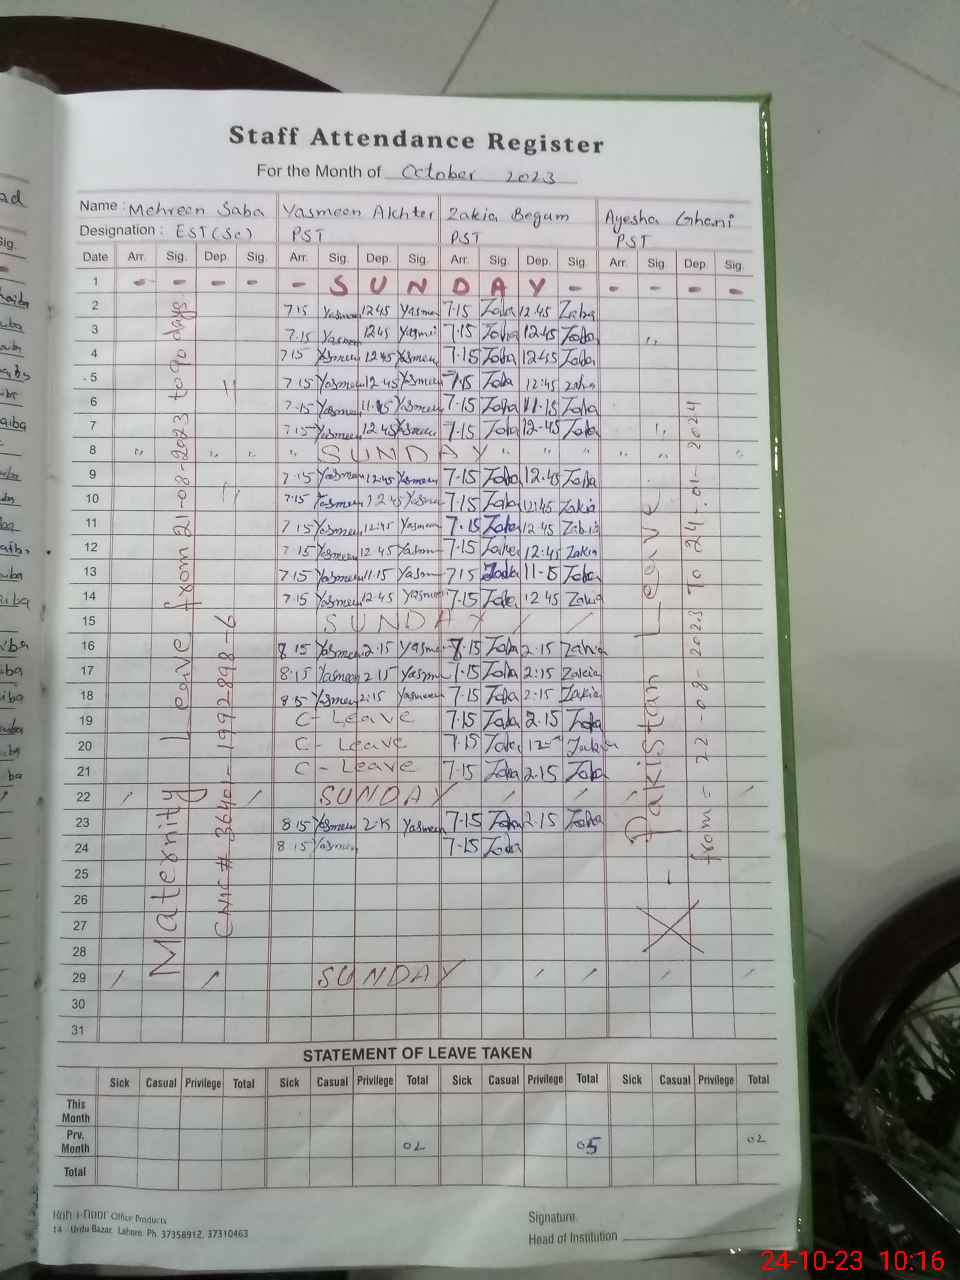 Staff Attendance Register
For the Month of October 2023
Name : Mehreen Saba Yasmeen Akhter Zakia Begum Ayesha Ghani
Designation : EST (Sc) PST PST PST
Date Arr. Sig. Dep. Sig. Arr. Sig. Dep. Sig. Arr. Sig. Dep. Sig. Arr. Sig. Dep. Sig.
1 - - - - - S U N D A Y - - - - -
2 7.15 Yasmeen 12.45 Yasmeen 7.15 Zakia 12.45 Zakia
3 7.15 Yasmeen 12.45 Yasmeen 7.15 Zakia 12.45 Zakia
4 7.15 Yasmeen 12.45 Yasmeen 7.15 Zakia 12.45 Zakia
5 7.15 Yasmeen 12.45 Yasmeen 7.15 Zakia 12:45 Zakia
6 7.15 Yasmeen 11.15 Yasmeen 7.15 Zakia 11.15 Zakia
7 7.15 Yasmeen 12.45 Yasmeen 7.15 Zakia 12-45 Zakia
8 SUNDAY
9 7.15 Yasmeen 12.45 Yasmeen 7.15 Zakia 12.45 Zakia
10 7.15 Yasmeen 12.45 Yasmeen 7.15 Zakia 12:45 Zakia
11 7.15 Yasmeen 12.45 Yasmeen 7.15 Zakia 12.45 Zakia
12 7.15 Yasmeen 12.45 Yasmeen 7.15 Zakia 12:45 Zakia
13 7.15 Yasmeen 11.15 Yasmeen 7.15 Zakia 11-15 Zakia
14 7.15 Yasmeen 12.45 Yasmeen 7.15 Zakia 12.45 Zakia
15 SUNDAY
16 8.15 Yasmeen 2.15 Yasmeen 7.15 Zakia 2.15 Zakia
17 8.15 Yasmeen 2.15 Yasmeen 7.15 Zakia 2:15 Zakia
18 8.15 Yasmeen 2:15 Yasmeen 7.15 Zakia 2.15 Zakia
19 C- Leave 7.15 Zakia 2.15 Zakia
20 C- Leave 7.15 Zakia Zakia
21 C- Leave 7.15 Zakia 2.15 Zakia
22 SUNDAY
23 8.15 Yasmeen 2.15 Yasmeen 7.15 Zakia 2.15 Zakia
24 8.15 Yasmeen 7.15 Zakia
25
26
27
28
29 SUNDAY
30
31
Maternity Leave from 21-08-2023 to 90 days
CNIC # 36401-1992898-6
X - Pakistan Leave
from = 22-08-2023 To 24-01-2024
STATEMENT OF LEAVE TAKEN
Sick Casual Privilege Total Sick Casual Privilege Total Sick Casual Privilege Total Sick Casual Privilege Total
This Month
Prv. Month 02 05 02
Total
Koh-i-noor Office Products
14 - Urdu Bazar, Lahore. Ph. 37358912, 37310463
Signature
Head of Institution
24-10-23 10:16